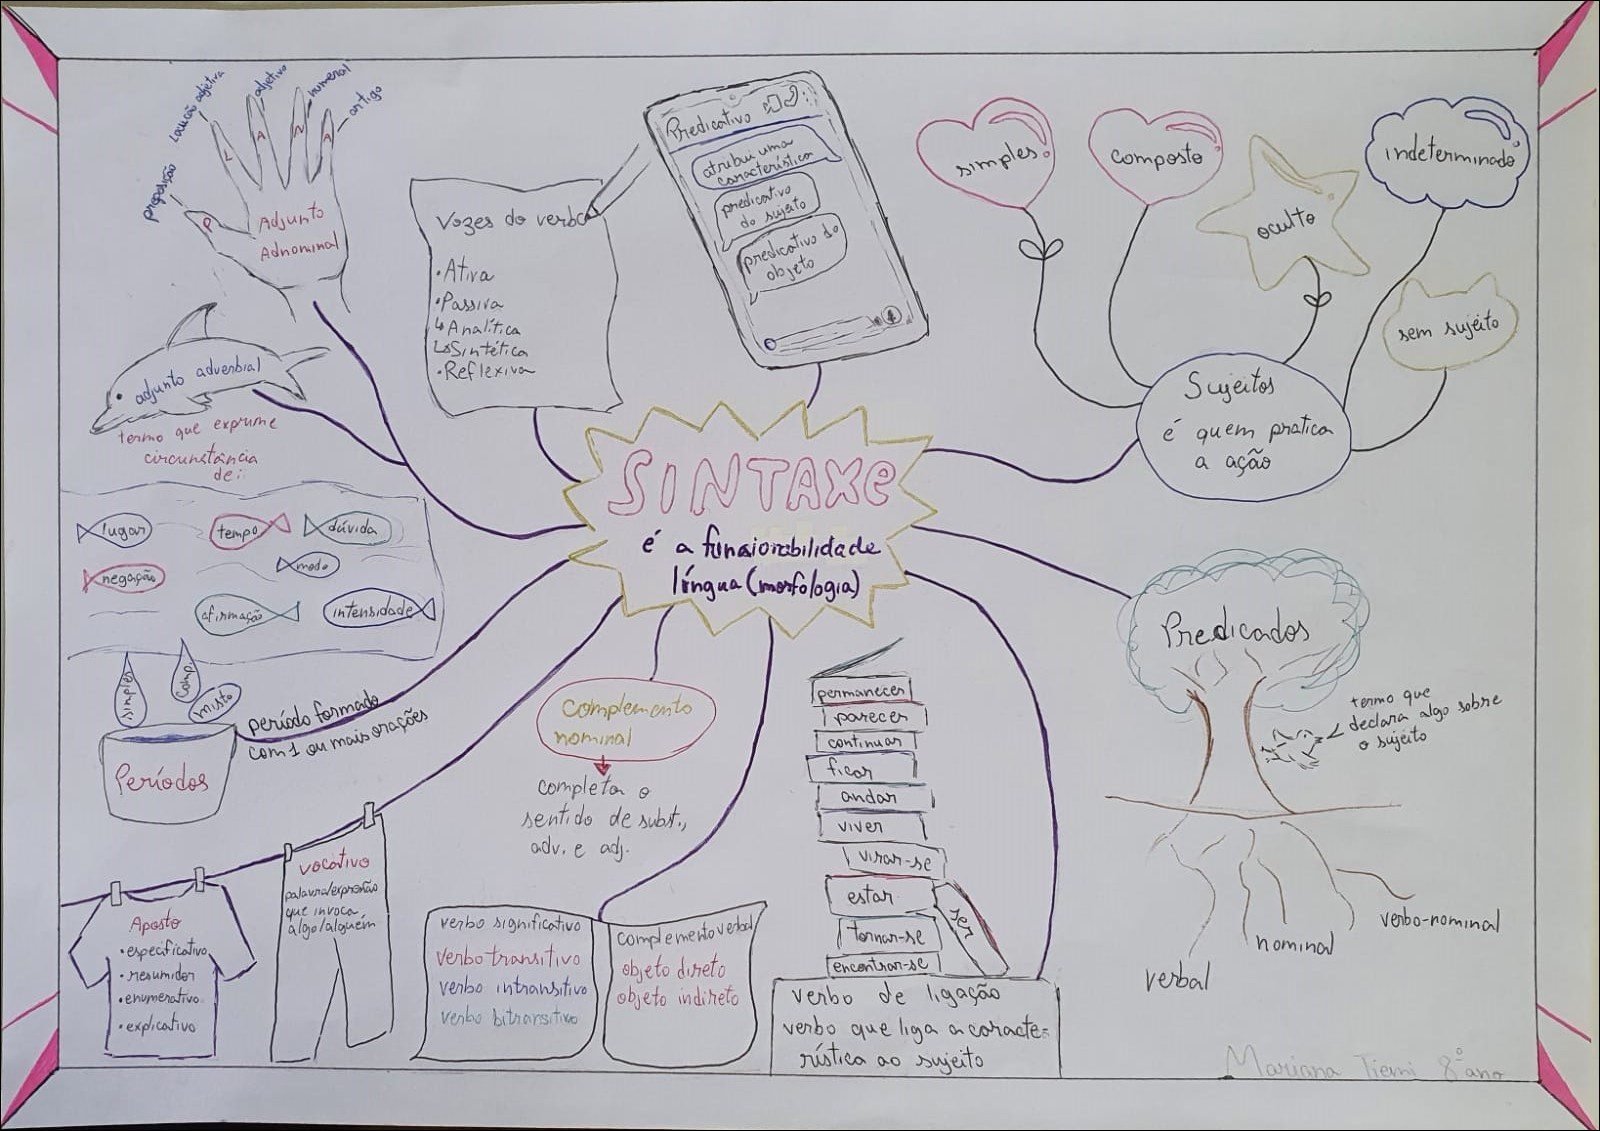 Locução adjetiva
adjetivo
numeral
artigo
preposição
L
A
N
A
P
Adjunto
Adnominal
Vozes do verbo
•Ativa
•Passiva
↳Analítica
↳Sintética
•Reflexiva
Predicativo
atribui uma
característica
predicativo
do sujeito
predicativo do
objeto
simples
composto
oculto
indeterminado
sem sujeito
Sujeitos
é quem pratica
a ação
adjunto adverbial
termo que exprime
circunstância
de:
lugar
tempo
dúvida
negação
modo
afirmação
intensidade
SINTAXE
é a funcionabilidade
língua (morfologia)
Predicados
termo que
declara algo sobre
o sujeito
verbal
nominal
verbo-nominal
simples
comp.
misto
Períodos
período formado
com 1 ou mais orações
complemento
nominal
completa o
sentido de subst.,
adv. e adj.
permanecer
parecer
continuar
ficar
andar
viver
virar-se
estar
ser
tornar-se
encontrar-se
verbo de ligação
verbo que liga a caracte-
rística ao sujeito
Aposto
•especificativo
•resumidor
•enumerativo
•explicativo
vocativo
palavra/expressão
que invoca
algo/alguém
verbo significativo
verbo transitivo
verbo intransitivo
verbo bitransitivo
complemento verbal
objeto direto
objeto indireto
Mariana Tiemi 8º ano